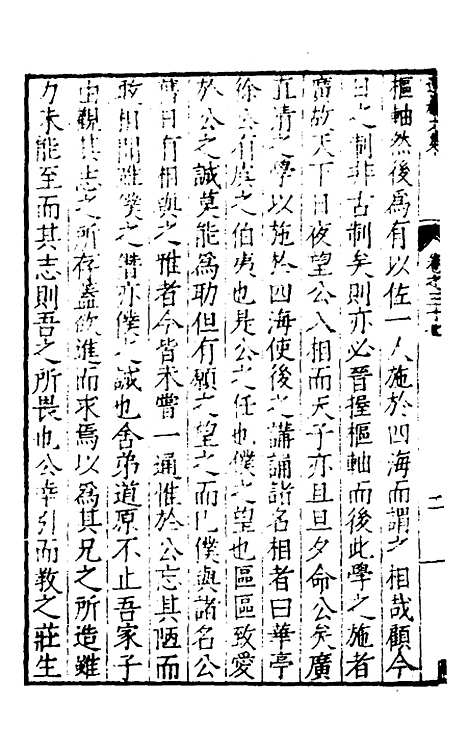 樞軸然後爲有以佐一人施於四海而謂之相哉顧今
日之制非古制矣則亦必晉握樞軸而後此學之施者
廣故天下日夜望公入相而天子亦且旦夕命公矣廣
直清之學以施於四海使後之講誦諸名相者曰華亭
徐公有虞之伯夷也是公之任也僕之望也區區致愛
於公之誠莫能爲助但有願之望之而已僕與諸名公
舊日有相與之雅者今皆未嘗一通惟於公忘其陋而
敢相聞雖僕之僭亦僕之誠也舍弟道原不止吾家子
由觀其志之所存蓋欲進而求焉以爲其兄之所造雖
力未能至而其志則吾之所畏也公幸引而教之莊生